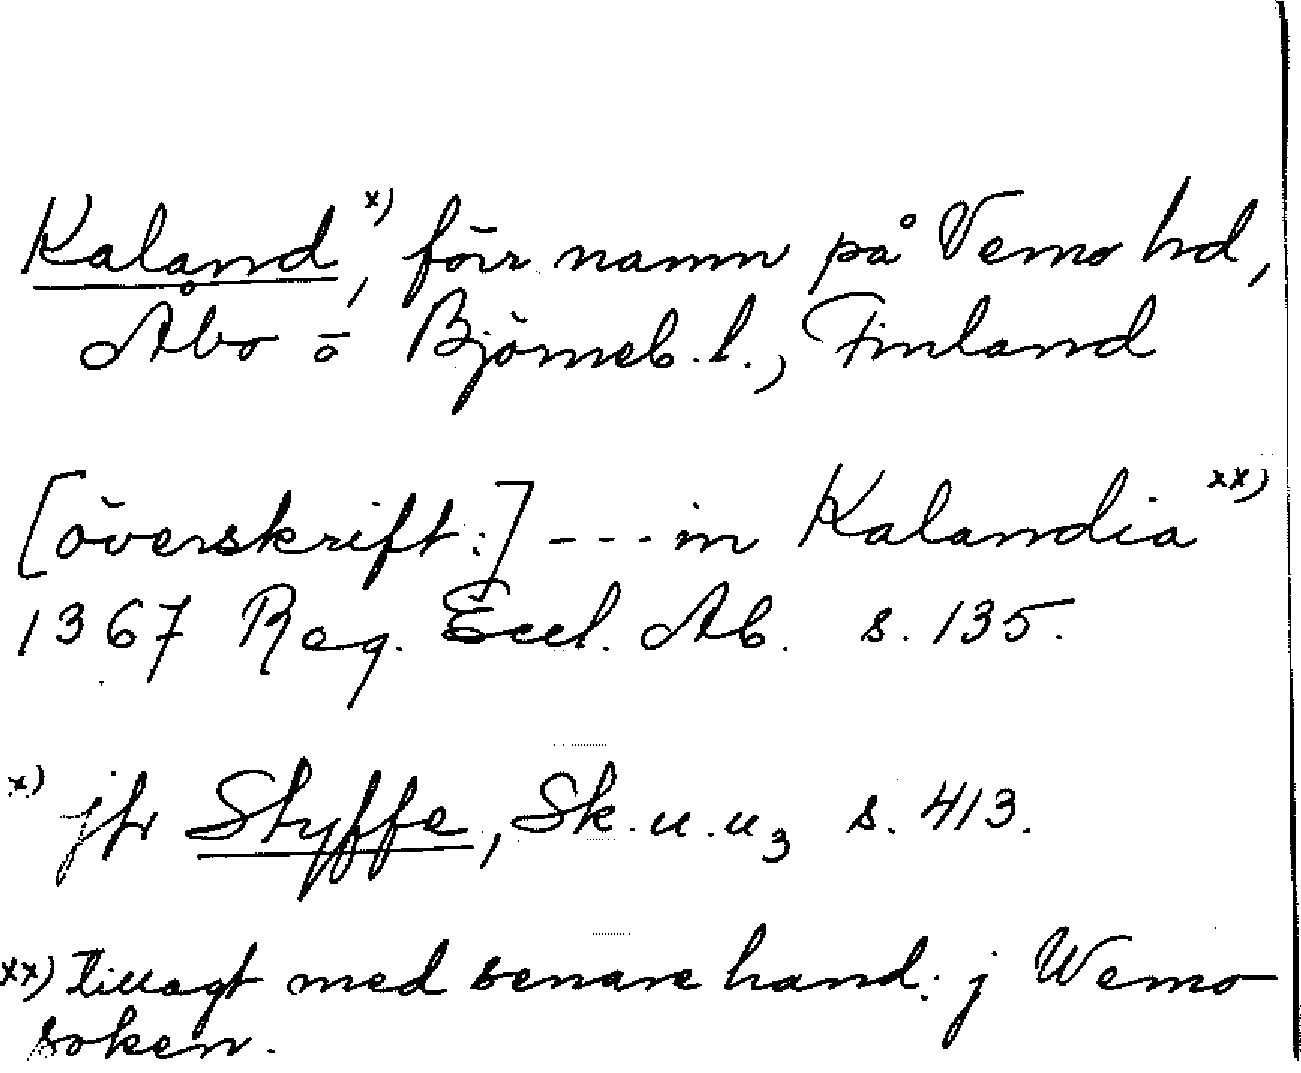 Kaland,ˣ⁾ förr namn på Vemo hd,
Åbo o Björneb. l., Finland
[överskrift:] --- in Kalandiaˣˣ⁾
1367 Reg. Eccl. Ab. s. 135.
x) jfr Styffe, Sk. u. u₃ s. 413.
xx) tillagt med senare hand: j Wemo
soken.